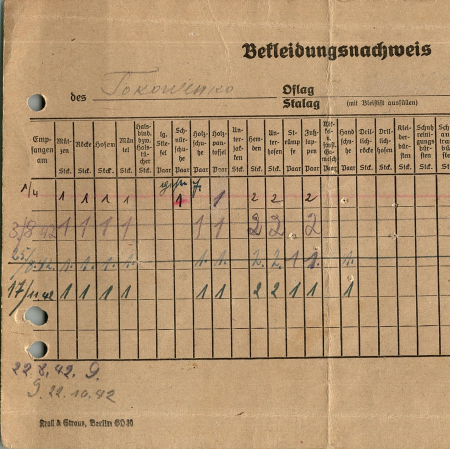 Bekleidungsnachweis
des Oflag
Stalag (mit Bleistift ausfüllen)
Emp-fangen am Müt-zen Stck. Röcke Stck. Hosen Stck. Män-tel Stck. Hals-bind. bzw. Hals-tücher Stck. Lg. Stie-fel Paar Schnür-schuhe Paar Holz-schuhe Paar Holz-pan-toffel Paar Un-ter-jacken Stck. Hem-den Stck. Un-ter-hosen Stck. Str-ümpfe Paar Fuß-lappen Paar Hand-schuhe Paar Drill-röcke Stck. Drill-hosen Stck. Klei-der-bürsten Stck.
1/4 1 1 1 1 1 1 2 2 2
3/8 42 1 1 1 1 1 1 2 2 2
1. 1. 1. 1. 1. 1. 2. 2. 1 1. 1.
17/11 42 1 1 1 1 1 1 2 2 1 1 1
22.8.42. G.
G. 22.10.42
Krall & Straus, Berlin SO 36